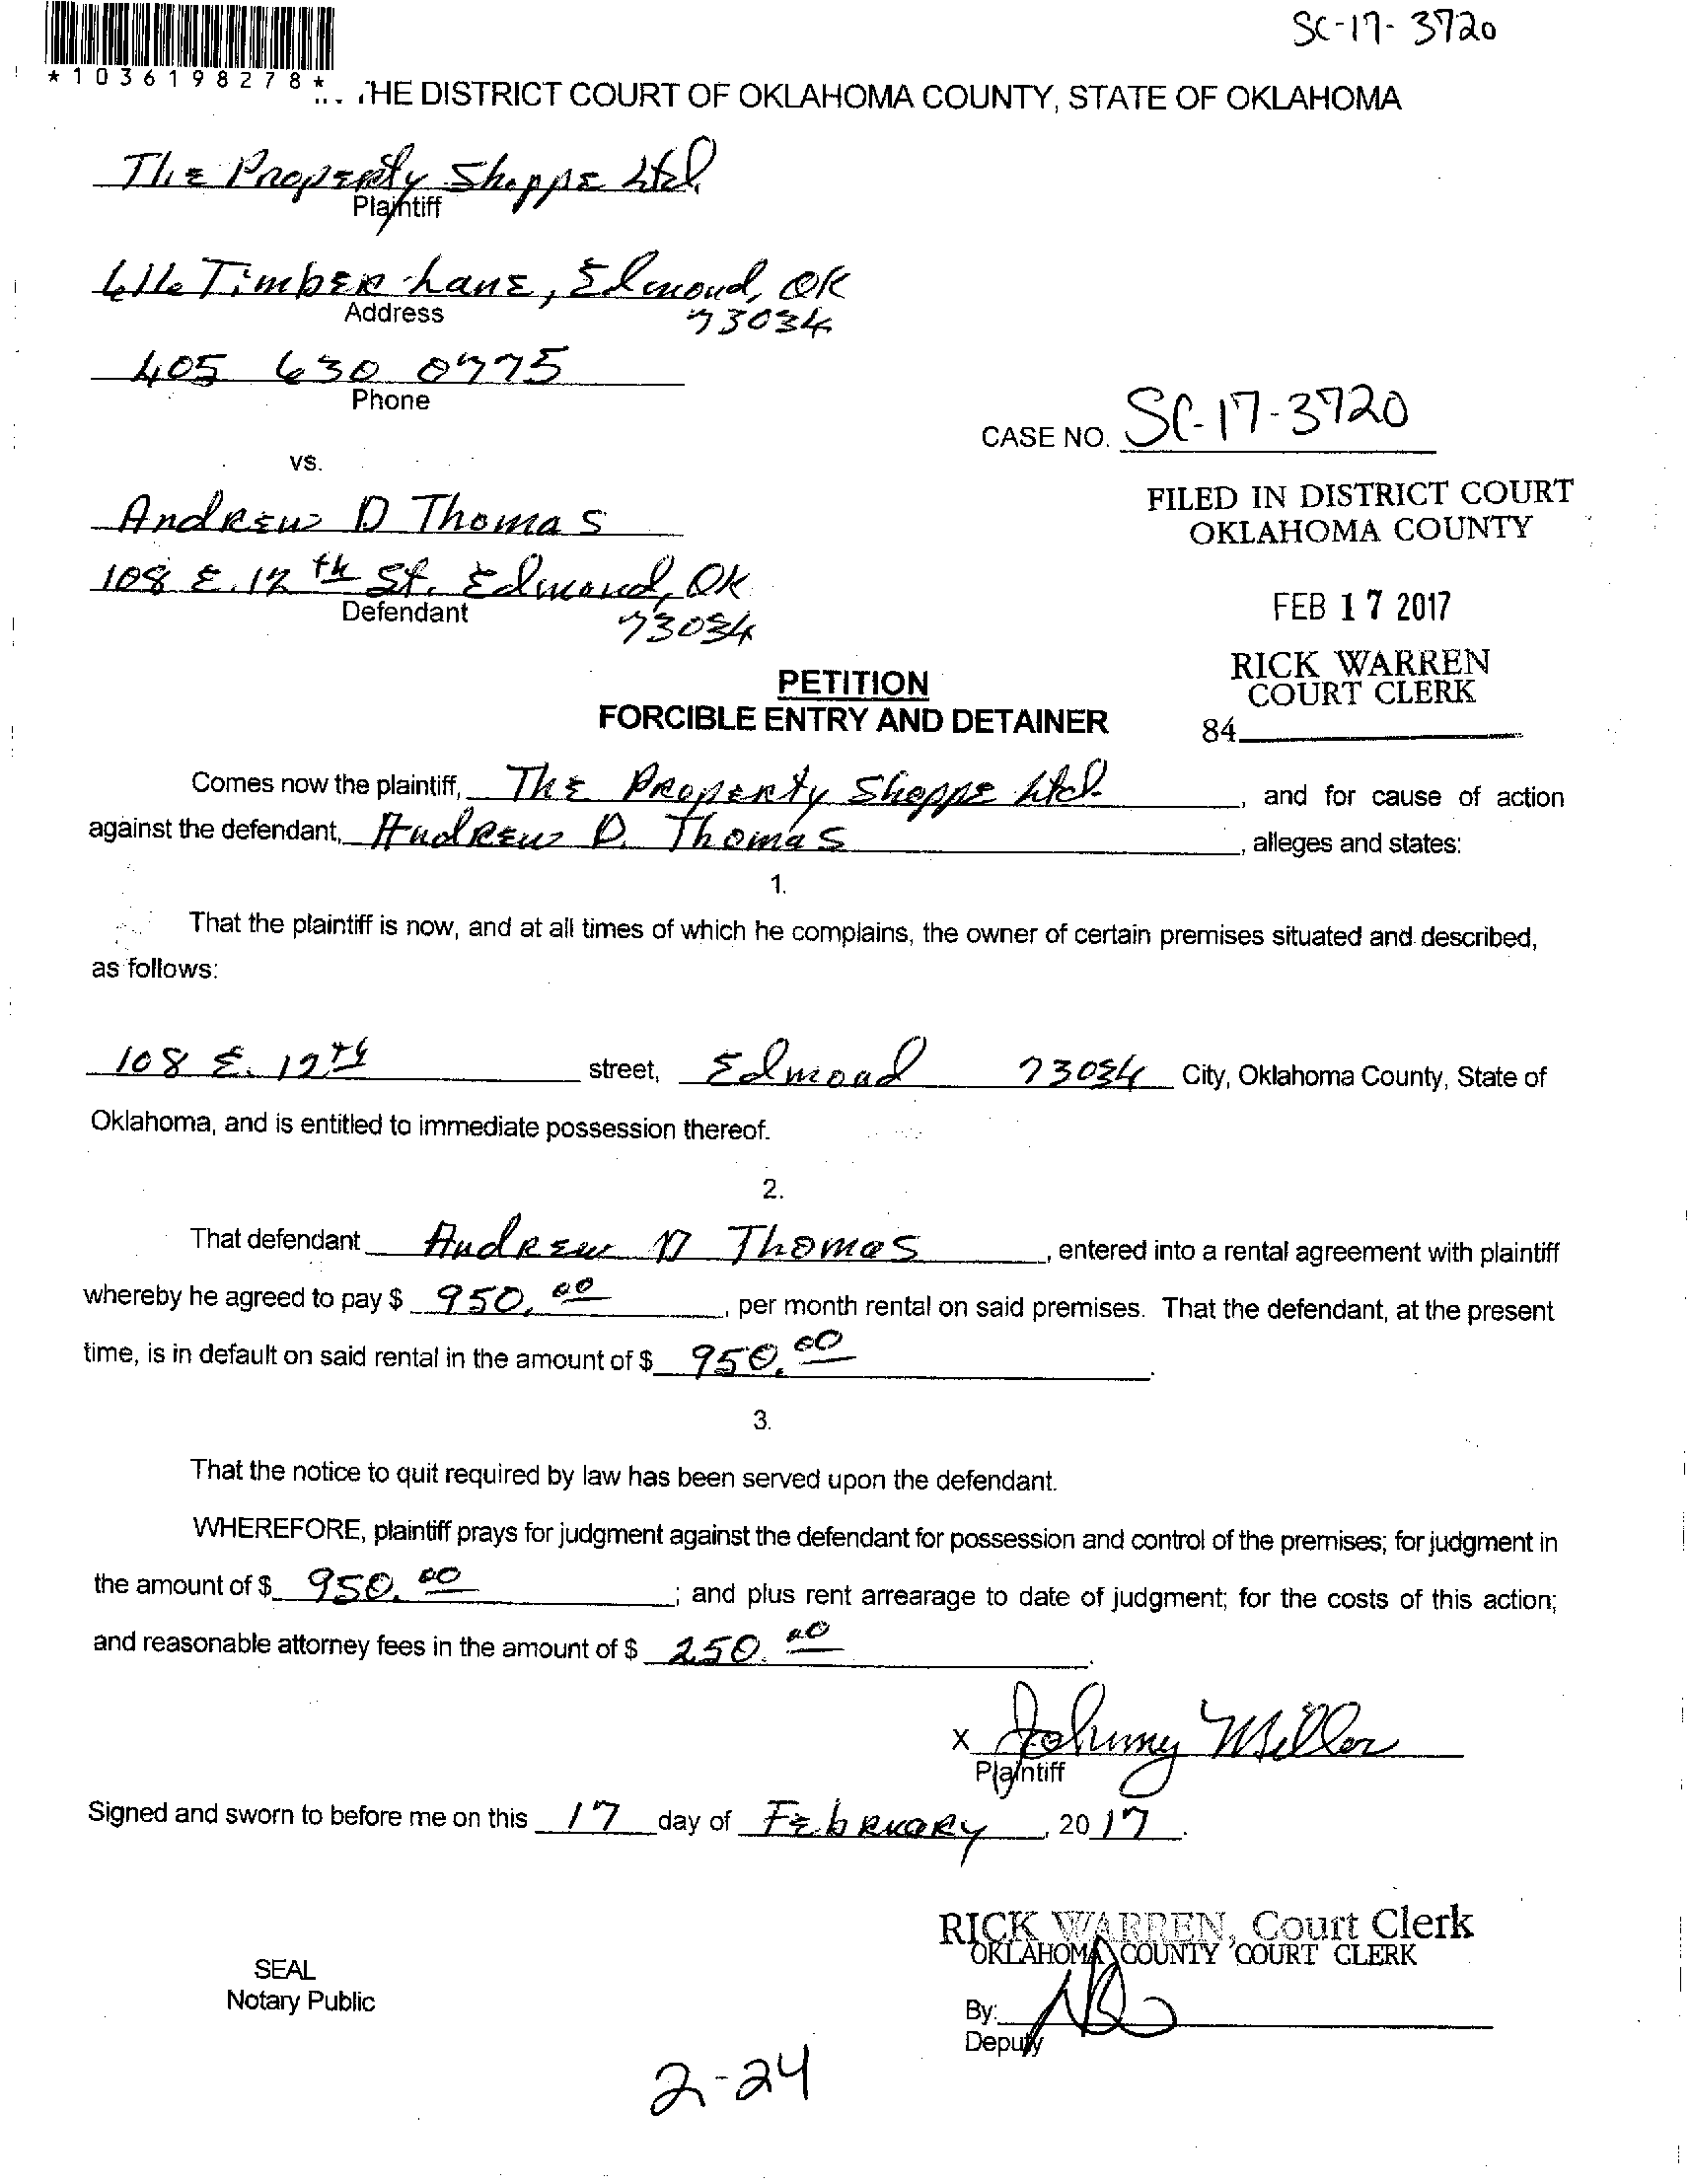 SC-17-3720
*1036198278*
THE DISTRICT COURT OF OKLAHOMA COUNTY, STATE OF OKLAHOMA
The Property Shoppe Ltd.
Plaintiff
616 Timber Lane, Edmond, OK
Address
73034
405 630 0775
Phone
CASE NO. SC-17-3720
vs.
FILED IN DISTRICT COURT
OKLAHOMA COUNTY
Andrew D Thomas
108 E. 12th St. Edmond, OK
Defendant
73034
FEB 17 2017
RICK WARREN
COURT CLERK
84
PETITION
FORCIBLE ENTRY AND DETAINER
Comes now the plaintiff, The Property Shoppe Ltd. , and for cause of action
against the defendant, Andrew D. Thomas , alleges and states:
1.
That the plaintiff is now, and at all times of which he complains, the owner of certain premises situated and described,
as follows:
108 E. 12th street, Edmond 73034 City, Oklahoma County, State of
Oklahoma, and is entitled to immediate possession thereof.
2.
That defendant Andrew D Thomas , entered into a rental agreement with plaintiff
whereby he agreed to pay $ 950.00 , per month rental on said premises. That the defendant, at the present
time, is in default on said rental in the amount of $ 950.00 .
3.
That the notice to quit required by law has been served upon the defendant.
WHEREFORE, plaintiff prays for judgment against the defendant for possession and control of the premises; for judgment in
the amount of $ 950.00 ; and plus rent arrearage to date of judgment; for the costs of this action;
and reasonable attorney fees in the amount of $ 250.00 .
X Johnny Miller
Plaintiff
Signed and sworn to before me on this 17 day of February , 20 17 .
RICK WARREN, Court Clerk
OKLAHOMA COUNTY COURT CLERK
SEAL
Notary Public
By:
Deputy
2-24